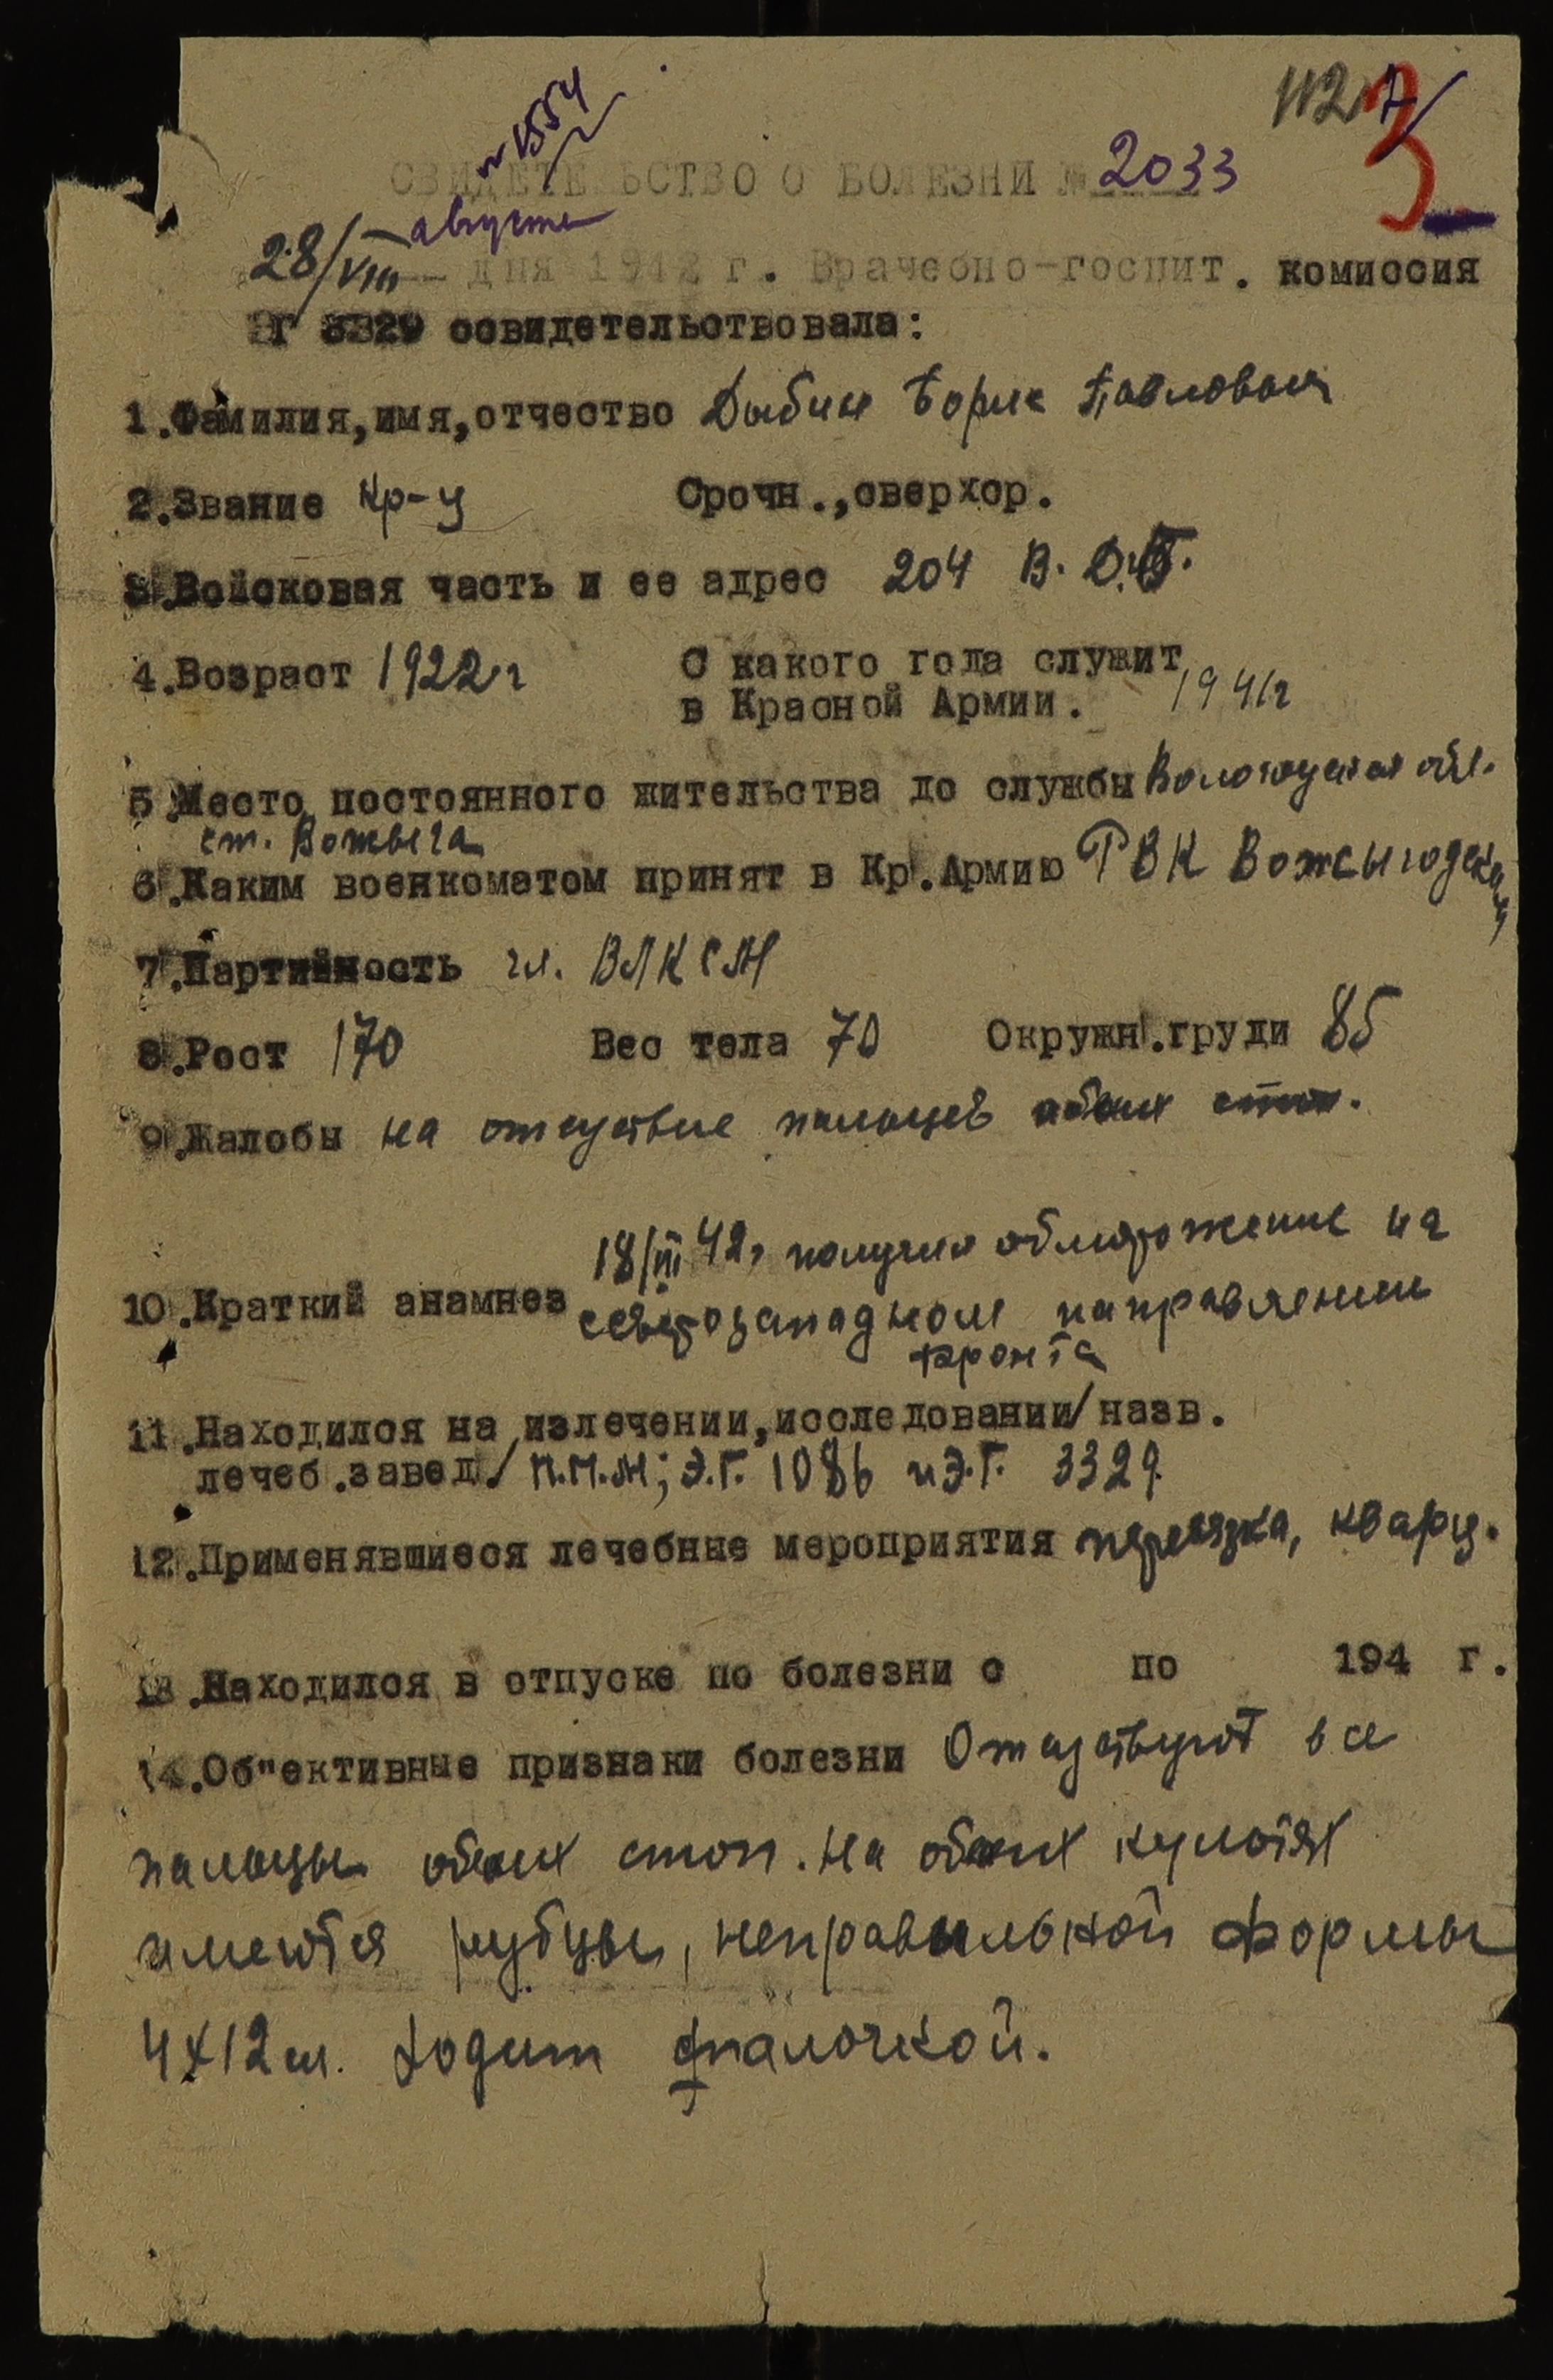 № 1554
112
3
СВИДЕТЕЛЬСТВО О БОЛЕЗНИ № 2033
августа
28/VIII дня 1942 г. Врачебно-госпит. комиссия
ЭГ 3329 освидетельствовала:
1.Фамилия,имя,отчество Дыбин Борис Павлович
2.Звание кр-ц Срочн.,сверхср.
3.Войсковая часть и ее адрес 204 В.
4.Возраст 1922г С какого года служит
в Красной Армии. 1941г
5.Место постоянного жительства до службы Вологодская обл.
ст. Вожега
6.Каким военкоматом принят в Кр.Армию РВК Вожсыгодскам
7.Партийность чл. ВЛКСМ
8.Рост 170 Вес тела 70 Окружн.груди 85
9.Жалобы на отсуствие пальцев обоих стоп.
18/III 42г получил обморожение на
10.Краткий анамнез северозападном направлении
фронта
11.Находился на излечении,исследовании/назв.
лечеб.завед./ П.П.М; Э.Г. 1086 и Э.Г. 3329.
12.Применявшиеся лечебные мероприятия перевязка, кварц.
13.Находился в отпуске по болезни с по 194 г.
14.Об"ективные признаки болезни Отсуствуют все
пальцы обоих стоп. На обоих культях
имеются рубцы, неправильной формы
4х12 см. Ходит с палочкой.